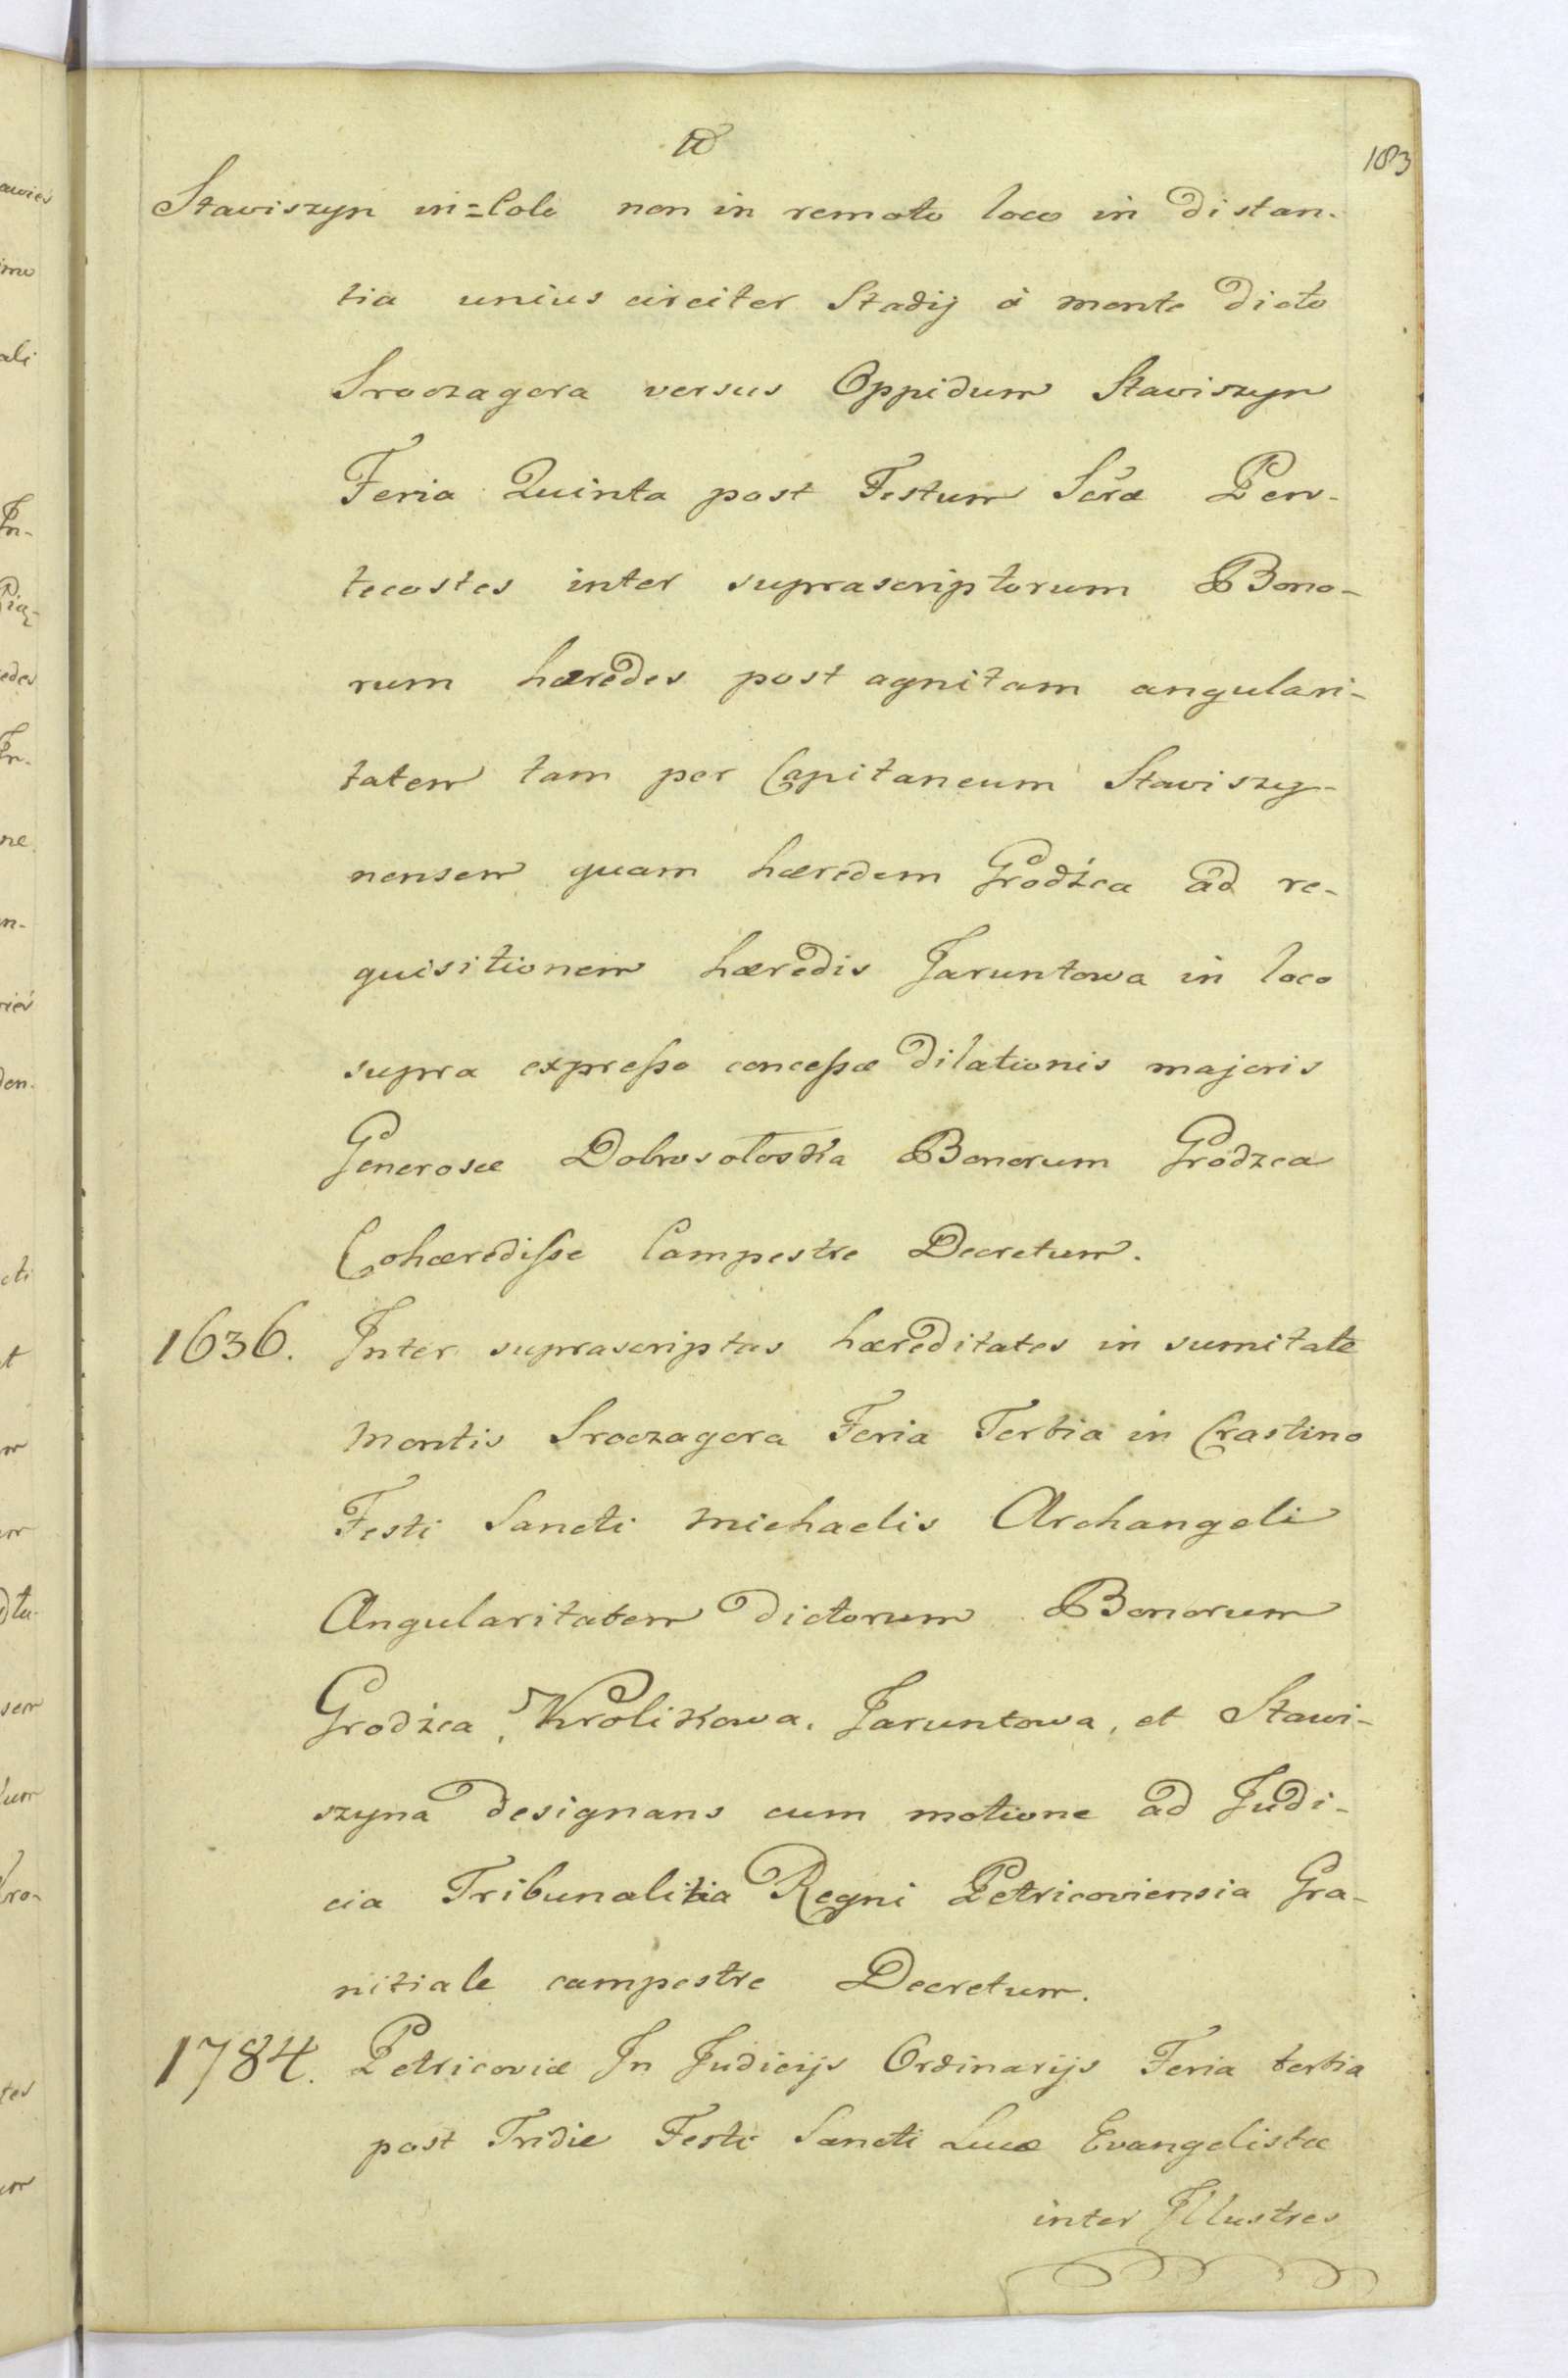 183
Stawiszyn in=Colo non in remoto loco in distan-
tia unius circiter Stadij à monte dicto
Sroczagora versus Oppidum Stawiszyn
Feria Quinta post Festum Scræ Pen-
tecostes inter suprascriptorum Bono-
rum hæredes post agnitam angulari-
tatem tam per Capitaneum Stawiszy-
nensem quam hæredem Grodźca ad re-
quisitionem hæredis Jaruntowa in loco
supra expresso concessæ dilationis majoris
Generosæ Dobrosołoska Bonorum Grodzca
Cohæredisse Campestre Decretum.
1636. Inter suprascriptas hæreditates in sumitate
Montis Sroczagora Feria Tertia in Crastino
Festi Sancti Michaelis Archangeli
Angularitatem dictorum Bonorum
Grodzca, Krolikowa, Jaruntowa, et Stawi-
szyna designans cum motione ad Judi-
cia Tribunalitia Regni Petricoviensia Gra-
nitiale campestre Decretum.
1784. Petricoviæ In Judicijs Ordinarijs Feria tertia
post Tridie Festi Sancti Lucæ Evangelistæ
inter Illustres